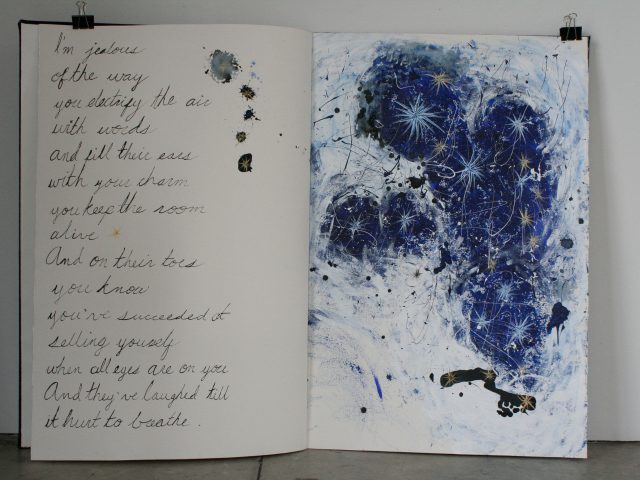 I'm jealous
of the way
you electrify the air
with words
and fill their ears
with your charm
you keep the room
alive
And on their toes
you know
you've succeeded it
selling youself
when all eyes are on you
And they've laughed till
it hurt to breathe.